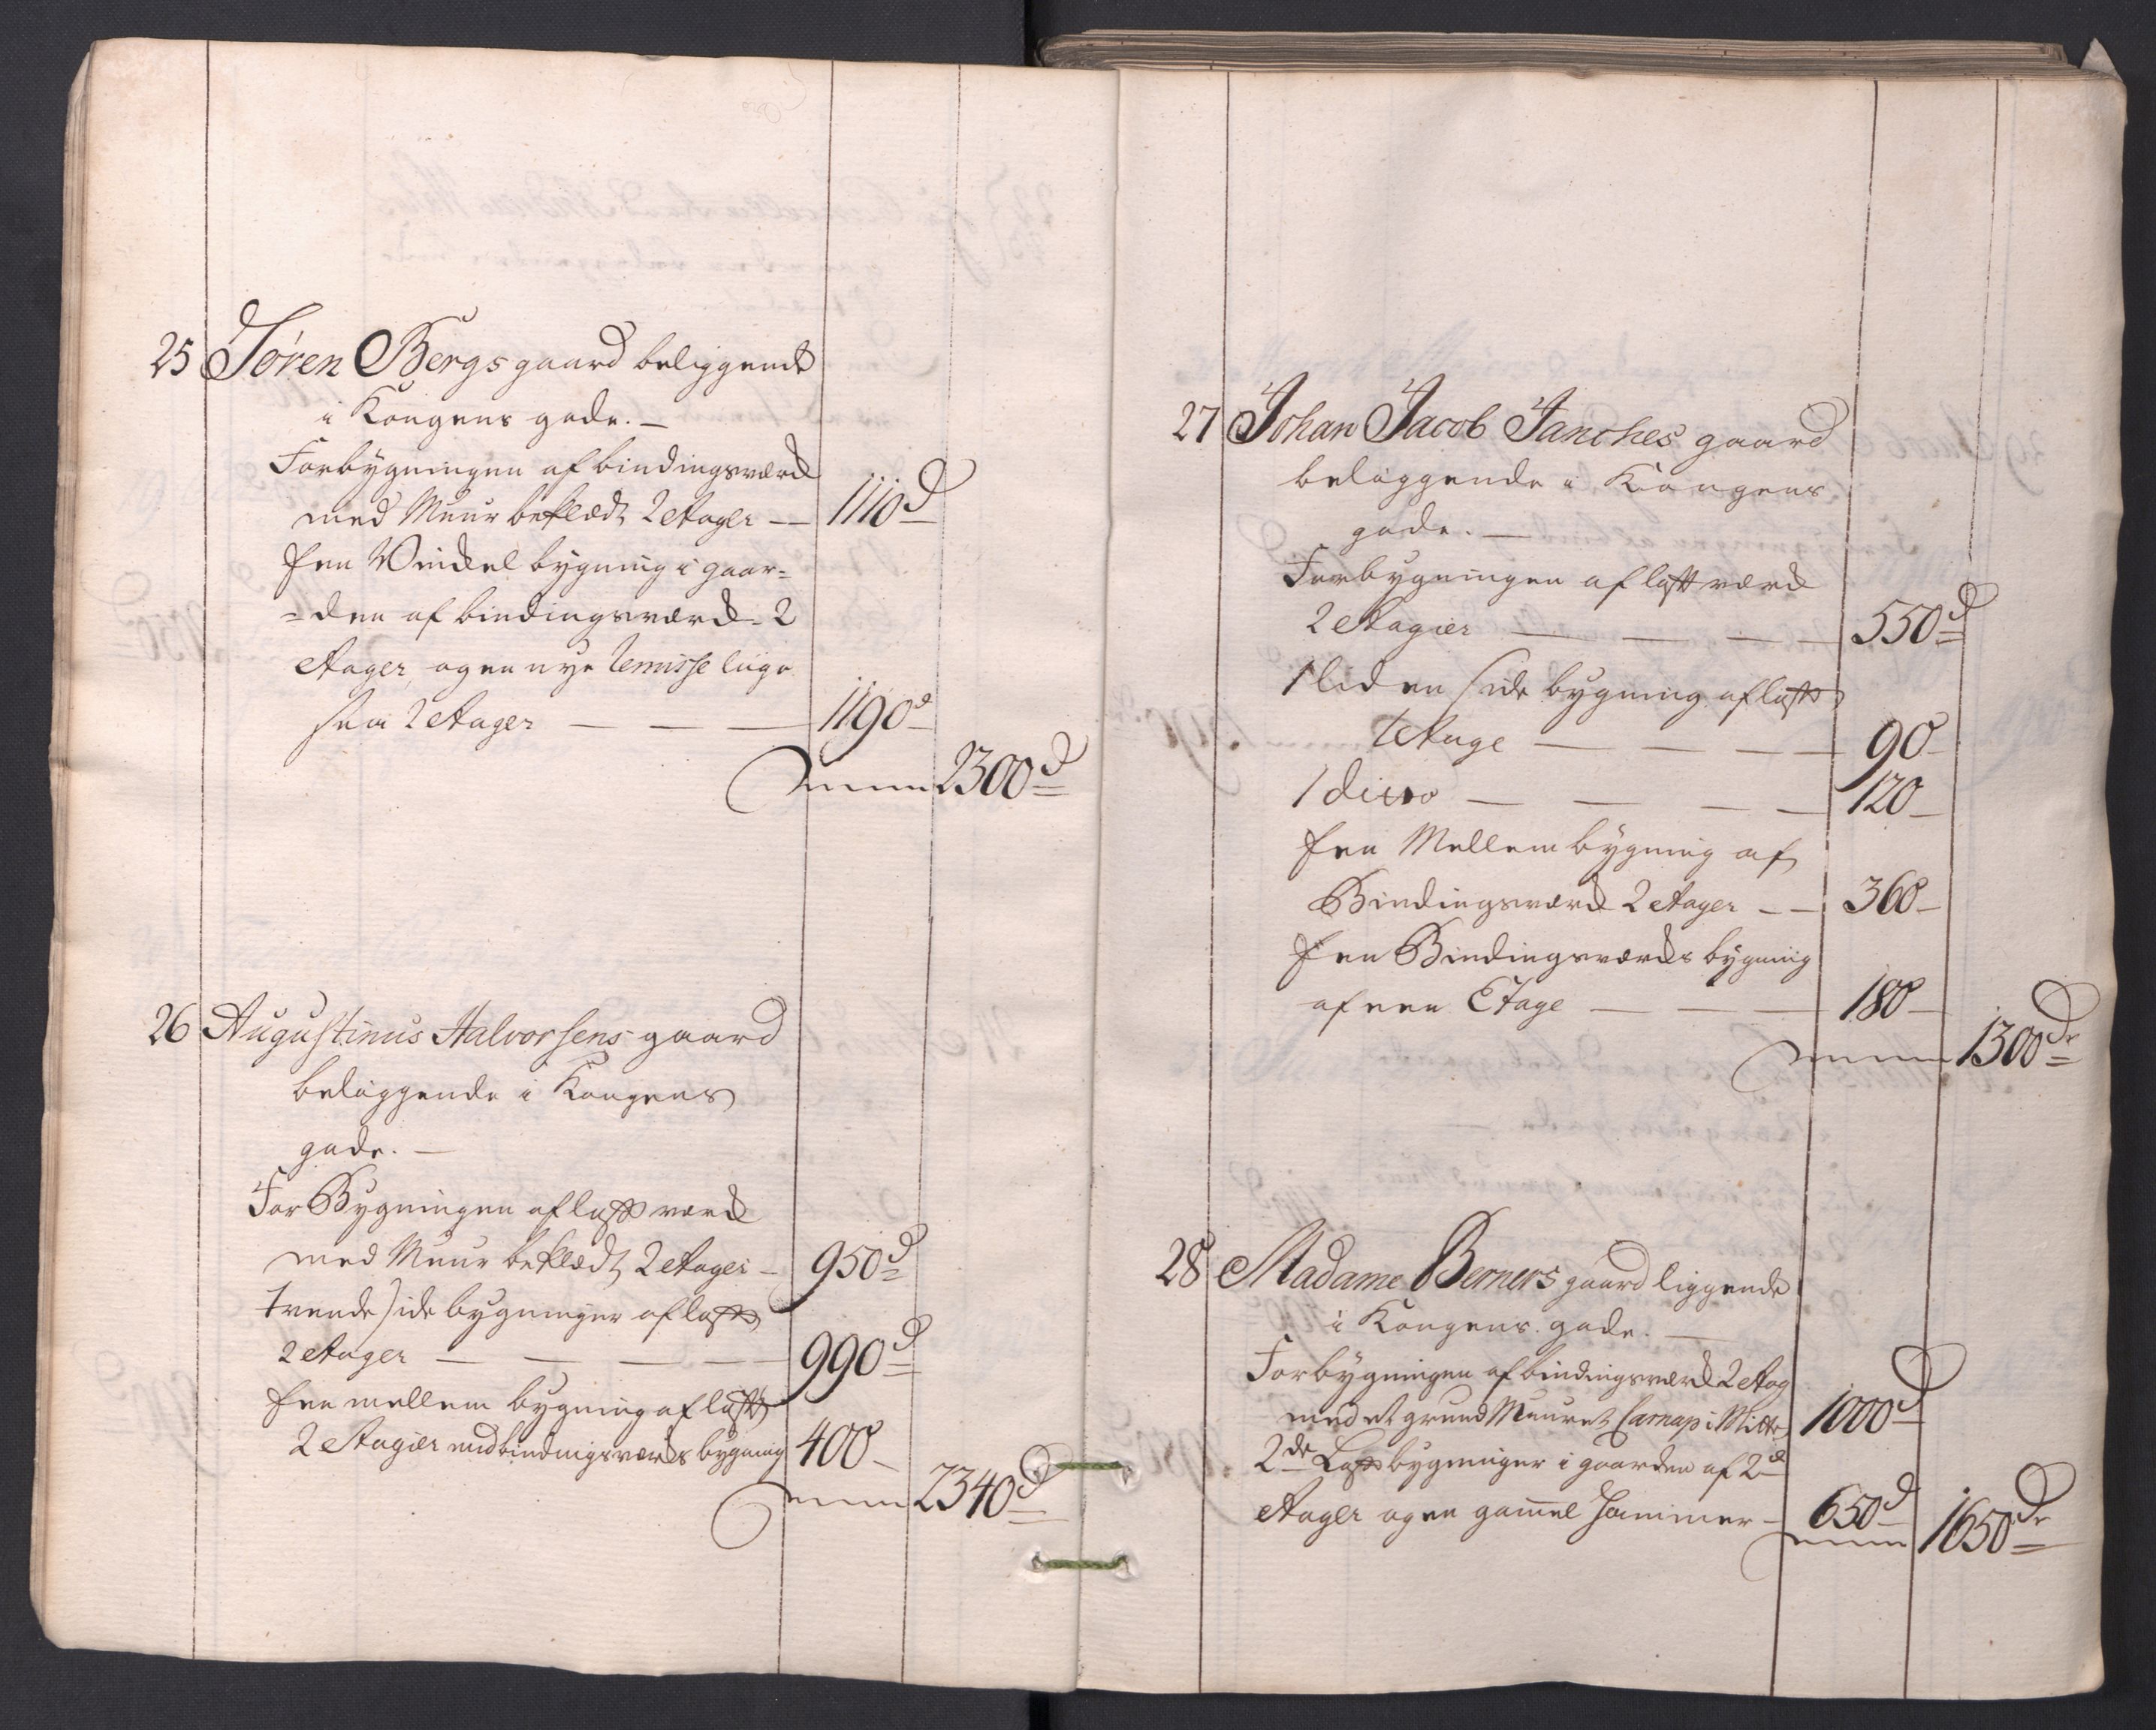 25 Sören Bergs gaard beliggende
i Kongens gade. —
Forbygningen af bindingsværck
med Muur beklædt 2 Etager — — 1110 d
Een Vinckel bygning i gaar=
=den af bindingsværck 2
Etager, og en nye Remisse liige
saa 2 Etager — — — 1190 d
Summa 2300 d
26 Augustinus Halvorsens gaard
beliggende i Kongens
gade. —
For Bygningen af laftværck
med Muur beklædt 2 Etager — 950 d
trende side bygninger af laft
2 Etager — — — — 990 d
Een mellem bygning af laft
2 Etagier med bindingsværcks bygning 400 —
Summa 2340 d
27 Johan Jacob Janches gaard
beliggende i Kongens
gade. —
Forbygningen af laftværck
2 Etagier — — — — 550 d
1 liden side bygning af laft
1 Etage — — — — 90 —
1 ditto — — — — 120 —
Een Mellem bygning af
Bindingsværck 2 Etager — — 360 —
Een Bindingsværcks bygning
af een Etage — — — 180 —
Summa 1300 dr
28 Madame Berners gaard liggende
i Kongens gade. —
Forbygningen af bindingsværck 2 Etag
med et grund Muuret Carnap i Mitten 1000 d
2de Laft bygninger i gaarden af 2d
Etager og en gam̄el — 650 d
Summa 1650 dr